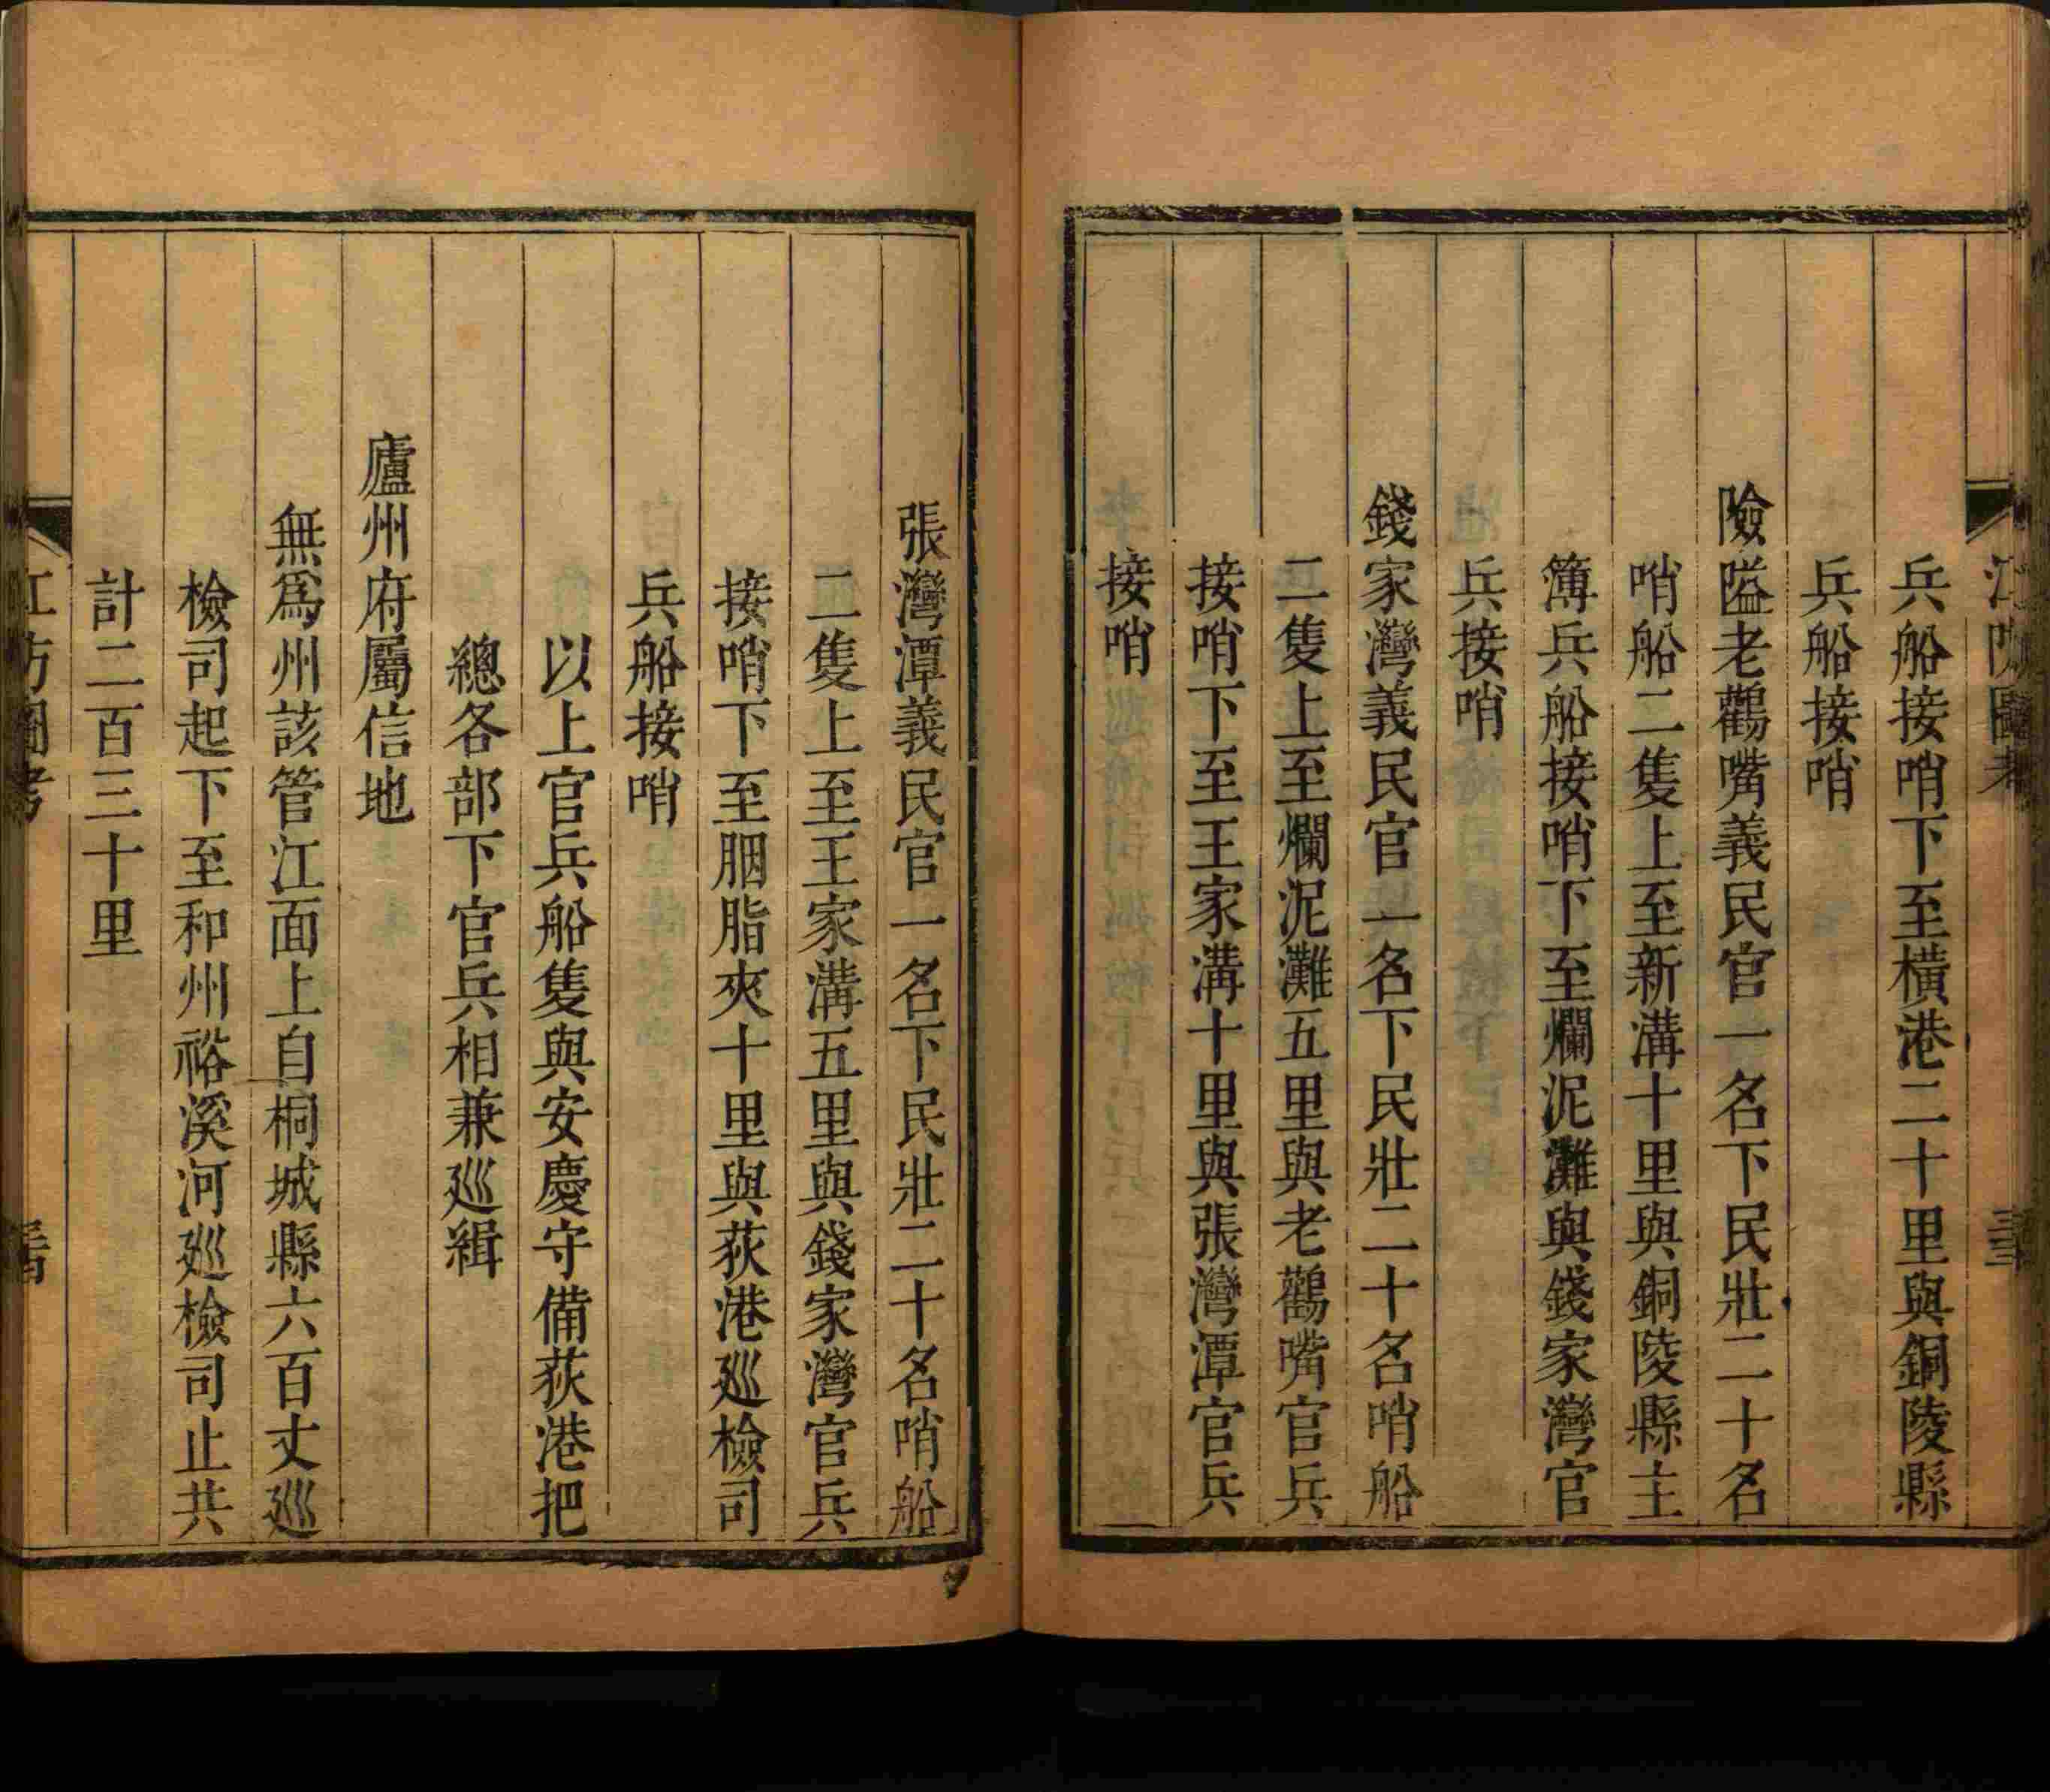 江防圖考
兵船接哨下至橫港二十里與銅陵縣
兵船接哨
險隘老鸛嘴義民官一名下民壯二十名
哨船二隻上至新溝十里與銅陵縣主
簿兵船接哨下至爛泥灘與錢家灣官
兵接哨
錢家灣義民官一名下民壯二十名哨船
二隻上至爛泥灘五里與老鸛嘴官兵
接哨下至王家溝十里與張灣潭官兵
接哨
張灣潭義民官一名下民壯二十名哨船
二隻上至王家溝五里與錢家灣官兵
接哨下至胭脂夾十里與荻港廵檢司
兵船接哨
以上官兵船隻與安慶守備荻港把
總各部下官兵相兼廵緝
廬州府屬信地
無爲州該管江面上自桐城縣六百丈廵
檢司起下至和州裕溪河廵檢司止共
計二百三十里
江防圖考